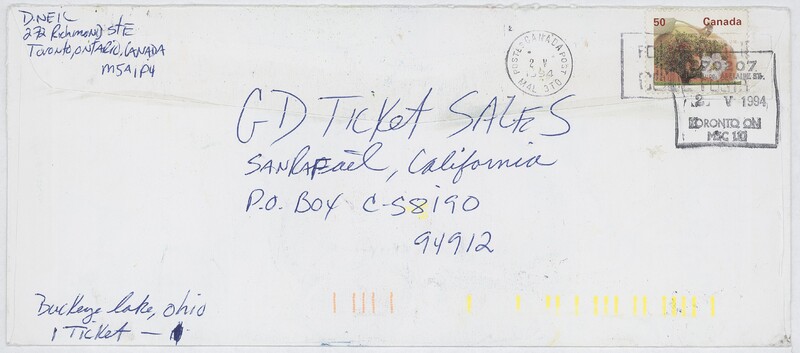 D. NEIL
272 Richmond ST E
Toronto, ONTARIO, CANADA
M5A1P4
50 Canada
POSTES CANADA POST
2 V
1994
MAL STO
70207
2 V 1994
TORONTO ON
GD TICKET SALES
SAN RAFAEL, California
P.O. BOX C-S8190
94912
Buckeye lake, ohio
1 TICKET —